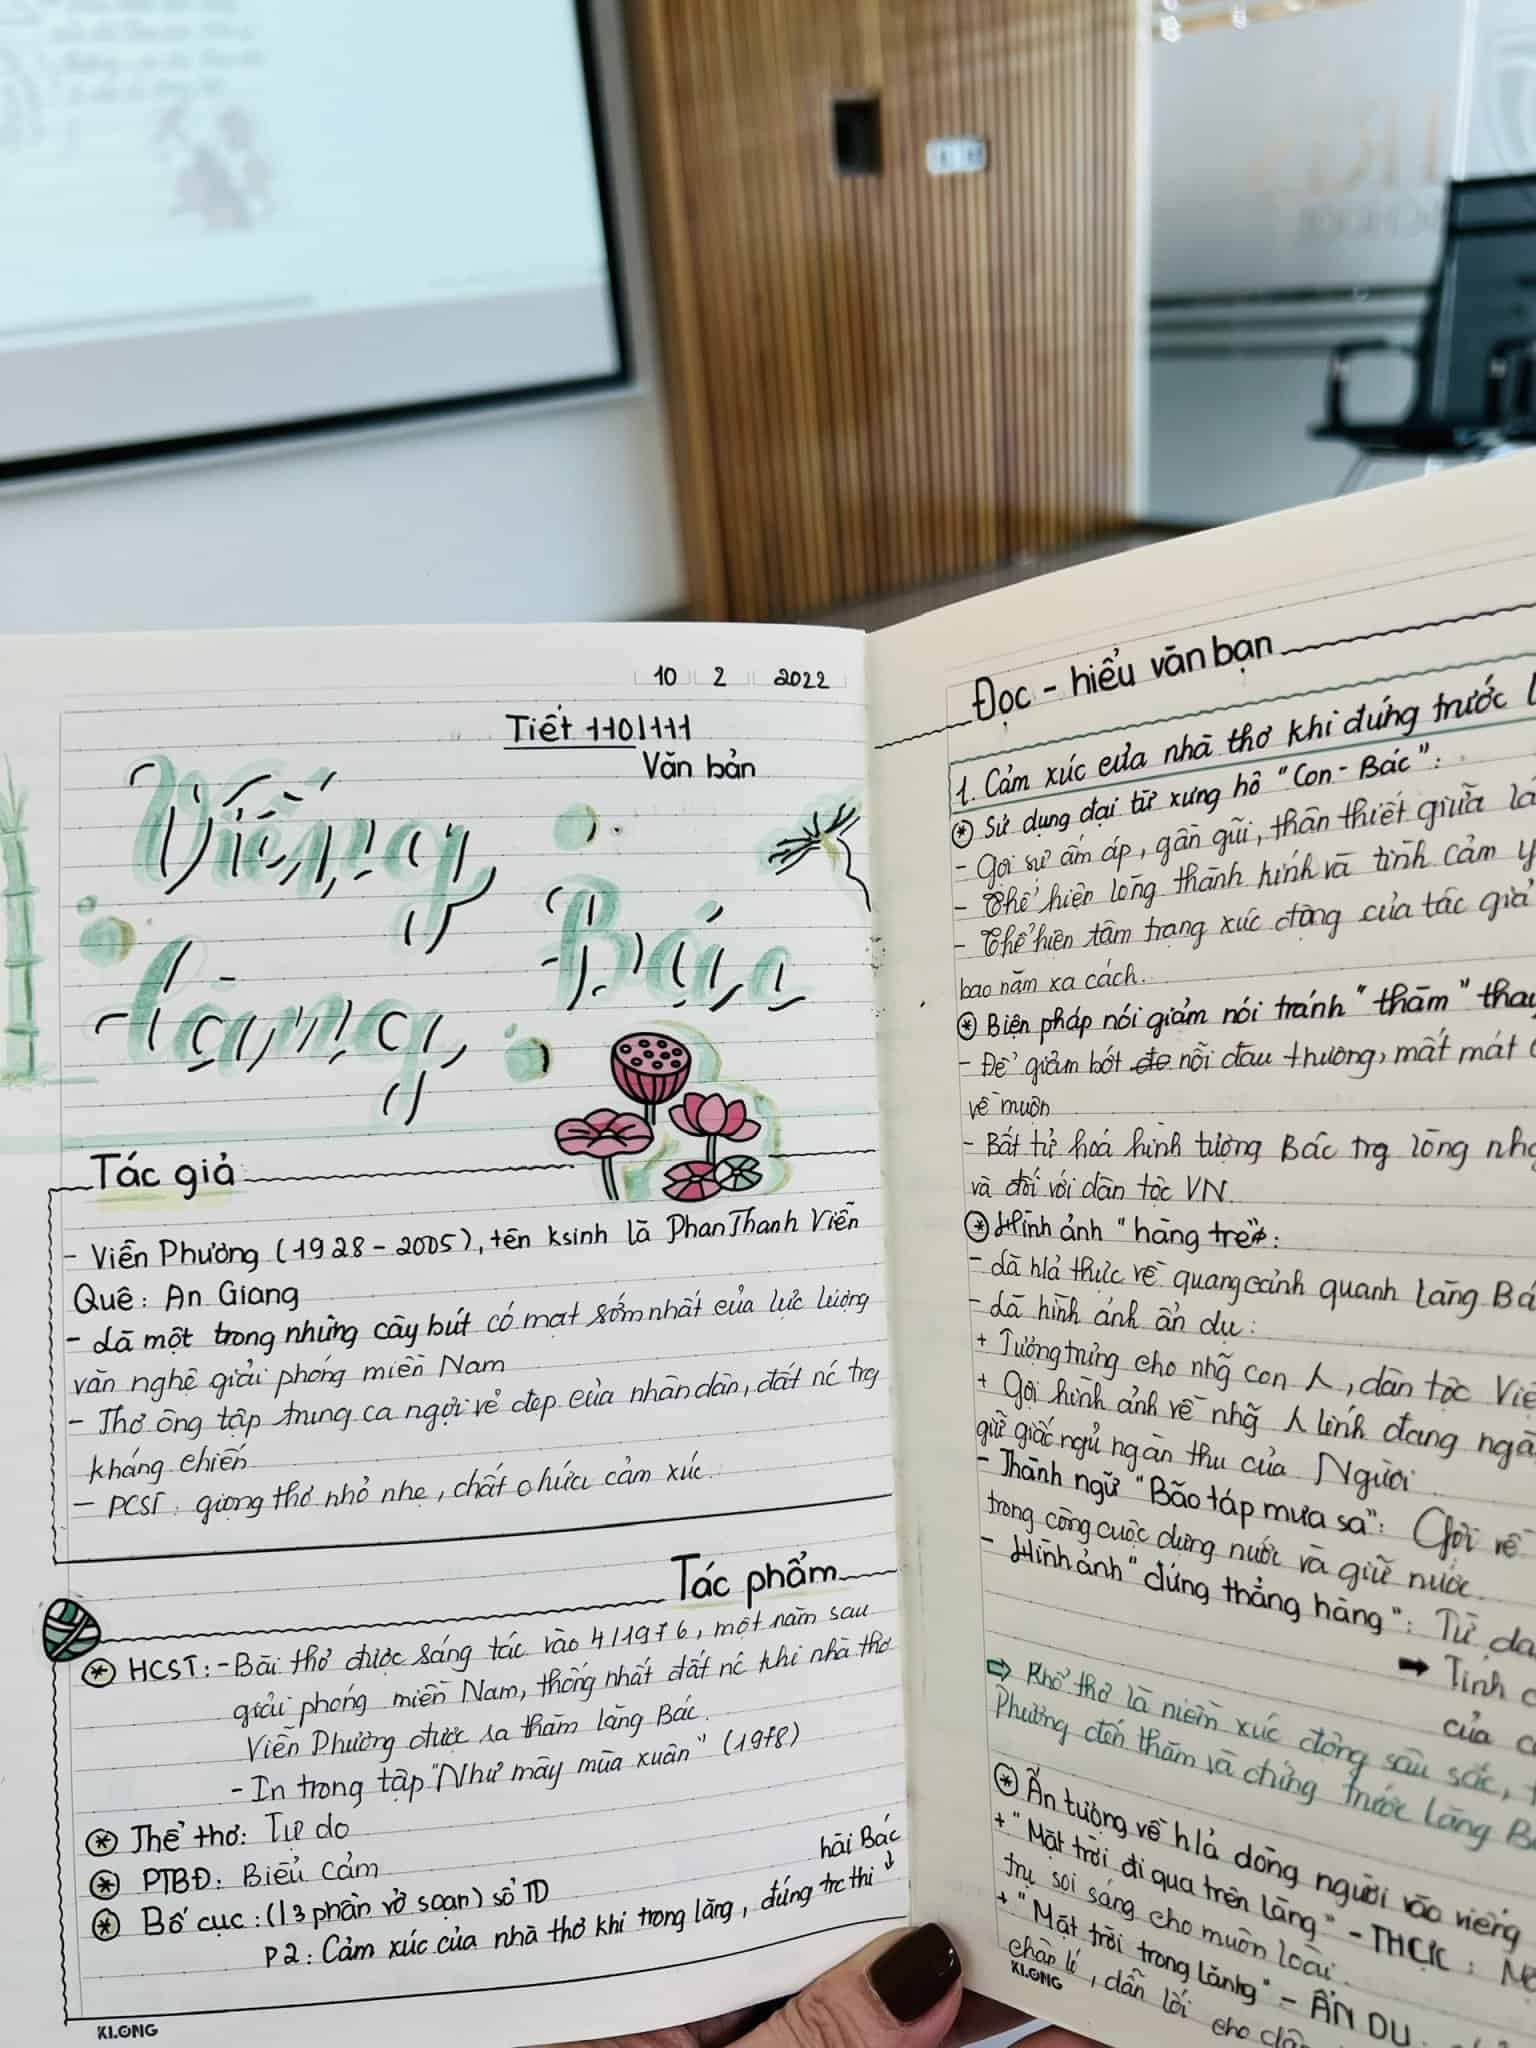 10 2 2022
Tiết 110+111
Văn bản
Viếng
Lăng Bác
Tác giả
- Viễn Phương (1928-2005), tên ksinh là Phan Thanh Viễn
Quê: An Giang
- Là một trong những cây bút có mặt sớm nhất của lực lượng
văn nghệ giải phóng miền Nam
- Thơ ông tập trung ca ngợi vẻ đẹp của nhân dân, đất nc trg
kháng chiến
- PCST: giọng thơ nhỏ nhẹ, chất chứa cảm xúc.
Tác phẩm
* HCST: - Bài thơ được sáng tác vào 4/1976, một năm sau
giải phóng miền Nam, thống nhất đất nc khi nhà thơ
Viễn Phương được ra thăm lăng Bác.
- In trong tập "Như mây mùa xuân" (1978)
* Thể thơ: Tự do
* PTBĐ: Biểu cảm
* Bố cục: (13 phần vở soạn) sổ TD
hài Bác
P2: Cảm xúc của nhà thơ khi trong lăng, đứng trc thi ↓
KLONG
Đọc - hiểu văn bạn
1. Cảm xúc của nhà thơ khi đứng trước
* Sử dụng đại từ xưng hô "Con - Bác":
- Gợi sự ấm áp, gần gũi, thân thiết giữa
- Thể hiện lòng thành kính và tình cảm
- Thể hiện tâm trạng xúc động của tác giả
bao năm xa cách.
* Biện pháp nói giảm nói tránh "thăm" thay
- Để giảm bớt nỗi đau thương, mất mát
về muộn
- Bất tử hoá hình tượng Bác trg lòng
và đối với dân tộc VN.
* Hình ảnh "hàng tre":
- Là h/ả thực về quang cảnh quanh lăng
- Là hình ảnh ẩn dụ:
+ Tượng trưng cho nhg con người, dân tộc
+ Gợi hình ảnh về nhg người lính đang
giữ giấc ngủ ngàn thu của Người.
- Thành ngữ "Bão táp mưa sa": Gợi về
trong công cuộc dựng nước và giữ nước.
- Hình ảnh "đứng thẳng hàng": Tư
➡ Tinh
của
⇨ Khổ thơ là niềm xúc động sâu sắc,
Phương đến thăm và đứng trước lăng
* Ấn tượng về h/ả dòng người vào viếng
+ "Mặt trời đi qua trên lăng" - THỰC:
trụ soi sáng cho muôn loài.
+ "Mặt trời trong lăng" - ẨN DỤ.
chân lí, dẫn lối cho
KLONG